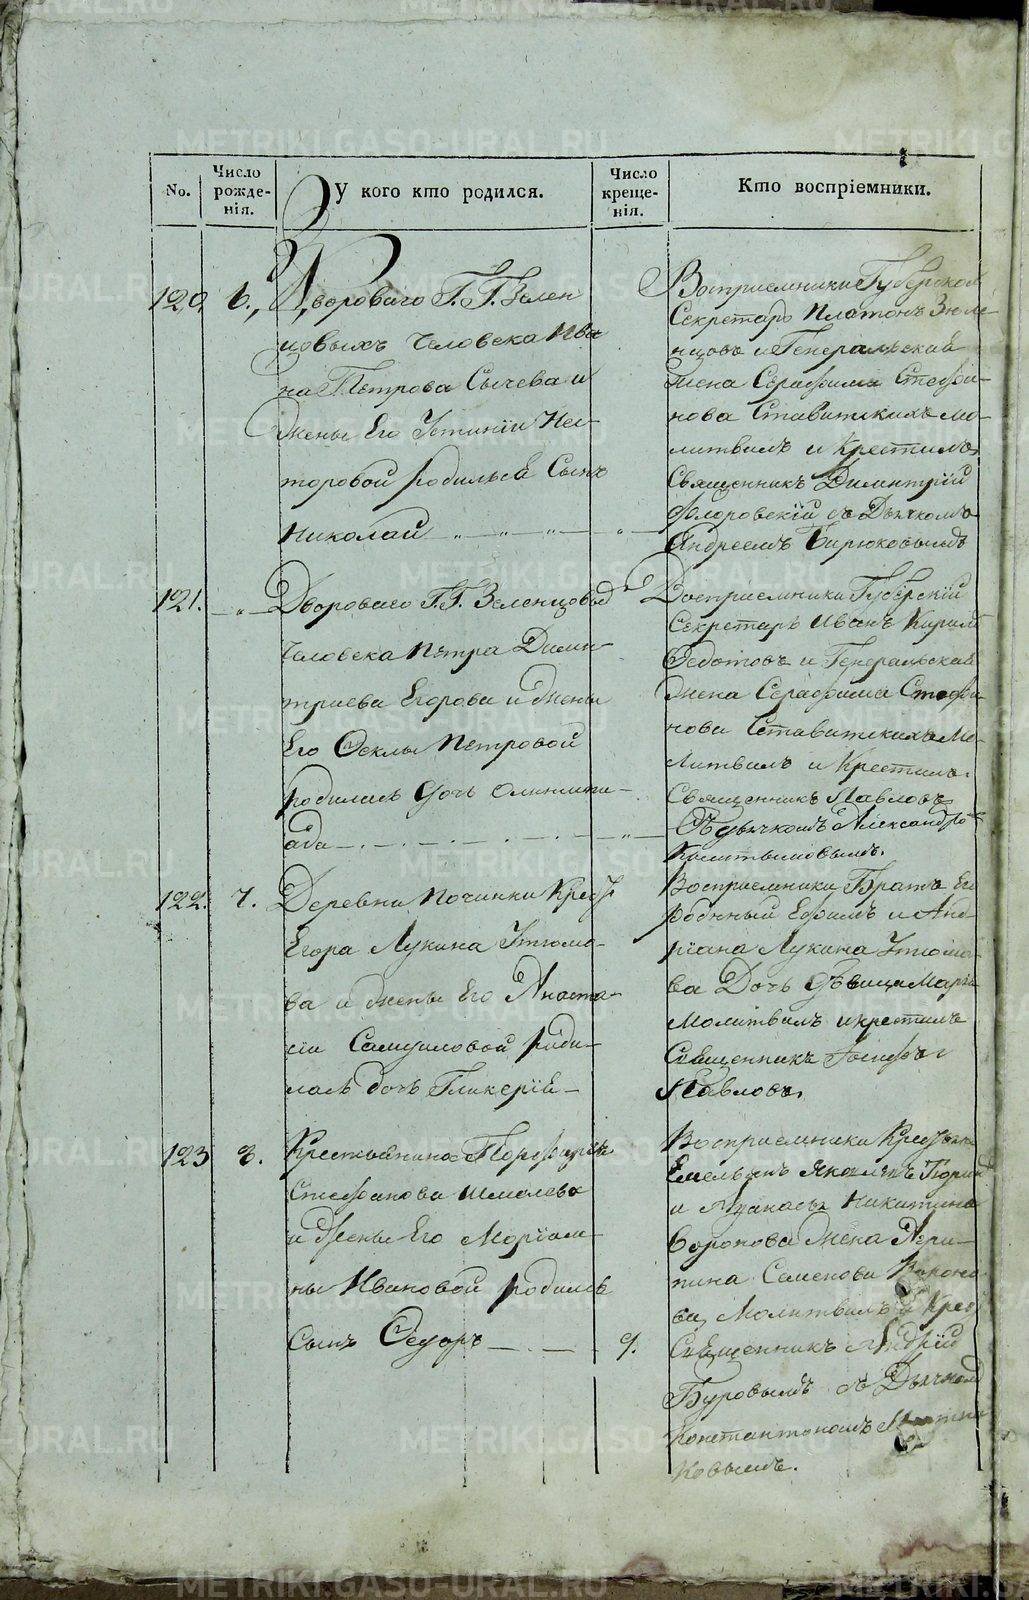 METRIKI.GASO-URAL.RU
No.
Число рожде-нія.
У кого кто родился.
Число креще-нія.
Кто воспріемники.
120,
6.,
Двороваго Г. Г. Зелен
цовыхъ Человека Ива
на Петрова Сычева и
жены Его Устиніи Нес-
торовой родился Сынъ
Николай
Восприемники Губерской
Секретарь Платонъ Зеле-
нцовъ и Генеральская
жена Серафима Стефа-
нова Ставитскихъ мо-
литвилъ и Крестилъ
Священникъ Димитрій
Флоровскій съ Дьячкомъ
Андреемъ Бирюковымъ
121.
Двороваго Г. Г. Зеленцовых
Человека Петра Дими
триева Егорова и жены
Его Феклы Петровой
родилась дочь Олимпи-
ада
Восприемники Губерскій
Секретарь Иванъ Кирил
Федотовъ и Генеральская
жена Серафима Стефа
нова Ставитскихъ Мо-
литвилъ и Крестилъ
Священникъ Павловъ
Съ дьячкомъ Александро
122.
7.
Деревни Починки Крест
Егора Лукина Утюмо-
ва и жены Его Анаста-
сіи Самуиловой роди-
лась дочь Гликерій
Восприемники Братъ Ег
родный Ефимъ и Анд
ріана Лукина Утюмо-
ва Дочь девица Марія
Молитвилъ и крестилъ
Священникъ Іосифъ
Павловъ.
123
8.
Крестьянина Порфирія
Стефанова Шмолева
и жены Его Маріам-
ны Ивановой родился
Сынъ Федоръ
9.
Восприемники Крестьян
Емельянъ
и Никитина
Воронова жена Агри-
пина Семенова Вороно
ва, Молитвилъ и Крес
Священникъ Андрій
Буровымъ съ Дьячкомъ
Константиномъ
ковымъ.